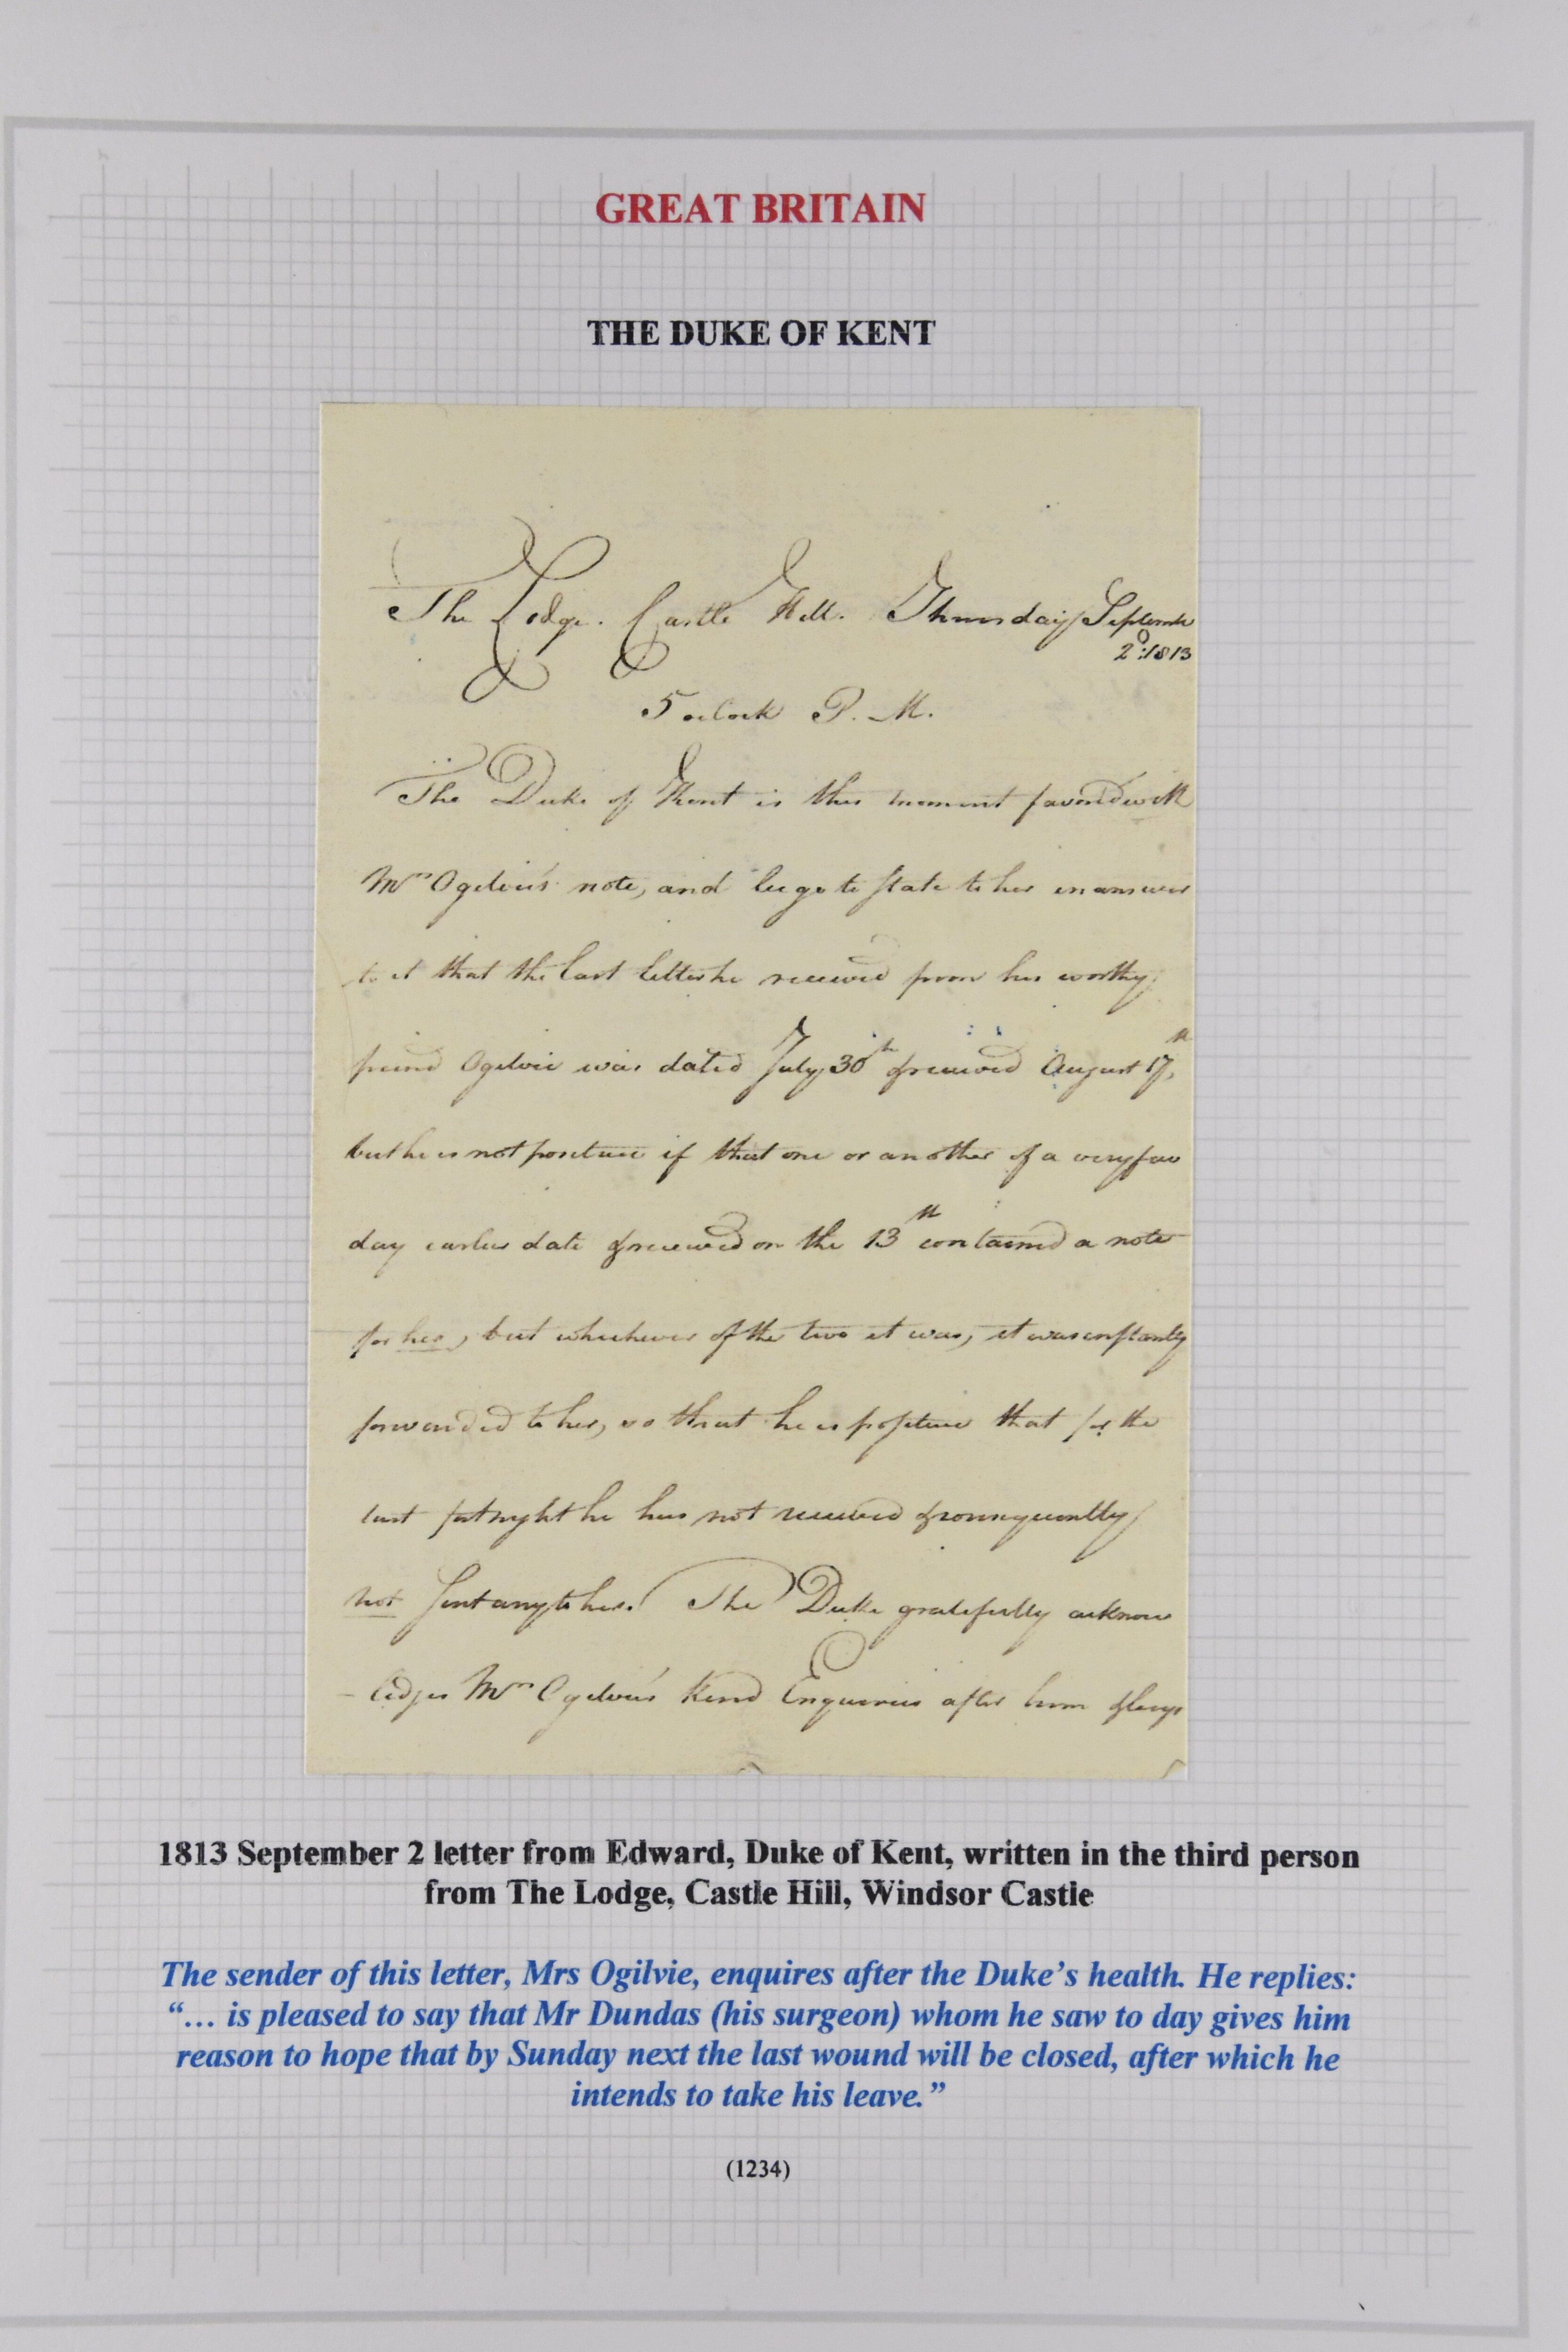 GREAT BRITAIN
THE DUKE OF KENT
The Lodge. Castle Hill. Thursday Septembr
2d: 1813
5 oclock P. M.
The Duke of Kent is this moment favored with
Mrs Ogilvie's note, and begs to state to her in answer
to it that the last letter he received from his worthy
friend Ogilvie was dated July 30th & received August 17th,
but he is not positive if that one or another of a very few
day earlier date & received on the 13th contained a note
for her, but whichever of the two it was, it was instantly
forwarded to her, so that he is positive that for the
last fortnight he has not received & consequently
not sent any to her. The Duke gratefully acknow
-ledges Mrs Ogilvie's kind Enquiries after him & begs
1813 September 2 letter from Edward, Duke of Kent, written in the third person
from The Lodge, Castle Hill, Windsor Castle
The sender of this letter, Mrs Ogilvie, enquires after the Duke's health. He replies:
“… is pleased to say that Mr Dundas (his surgeon) whom he saw to day gives him
reason to hope that by Sunday next the last wound will be closed, after which he
intends to take his leave.”
(1234)